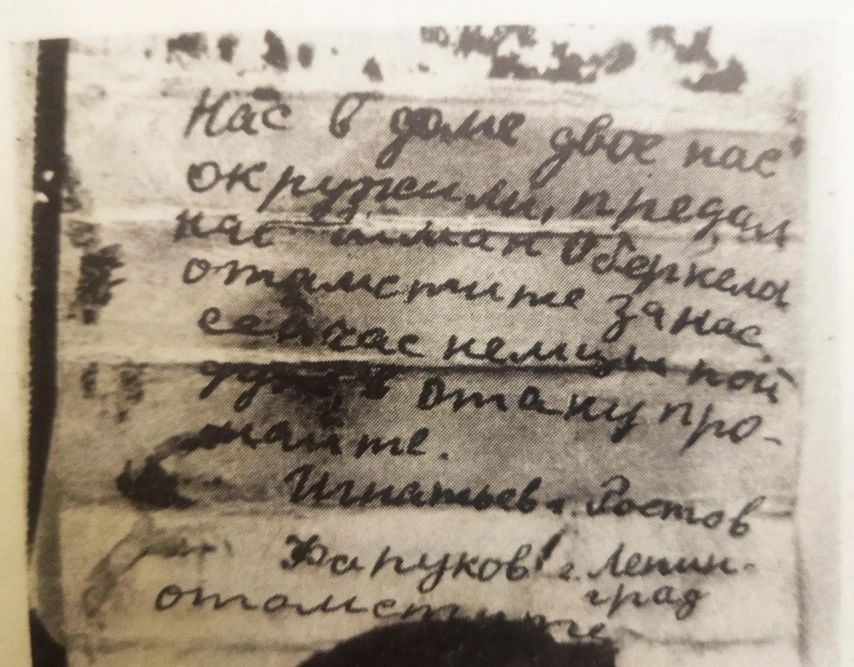 Нас в доме двое нас
окружили, предал
нас Оберкела
отамстите за нас,
сейчас немцы пой
дут в отаку про-
щайте.
Игнатьев г. Ростов
Фаруков г. Ленин-
град
отомстите